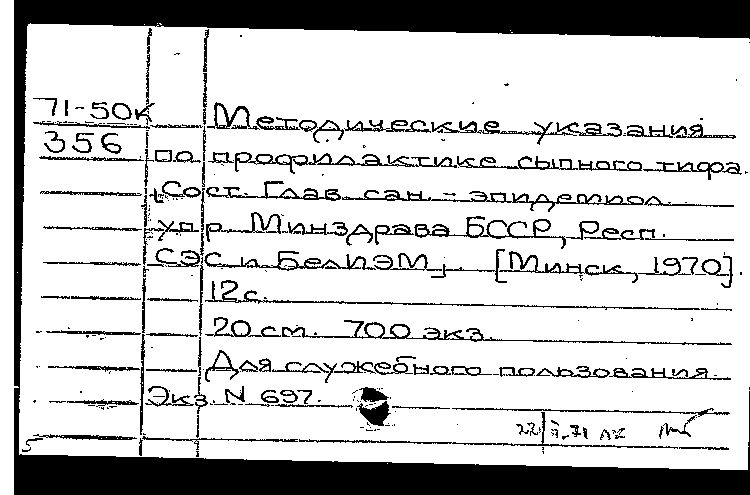 71-50К Методические указания
356 по профилактике сыпного тифа.
[Сост. Глав. сан. - эпидемиол.
упр. Минздрава БССР, Респ.
СЭС и БелИЭМ]. [Минск, 1970].
12 с.
20 см. 700 экз.
Для служебного пользования.
Экз. N 697.
5